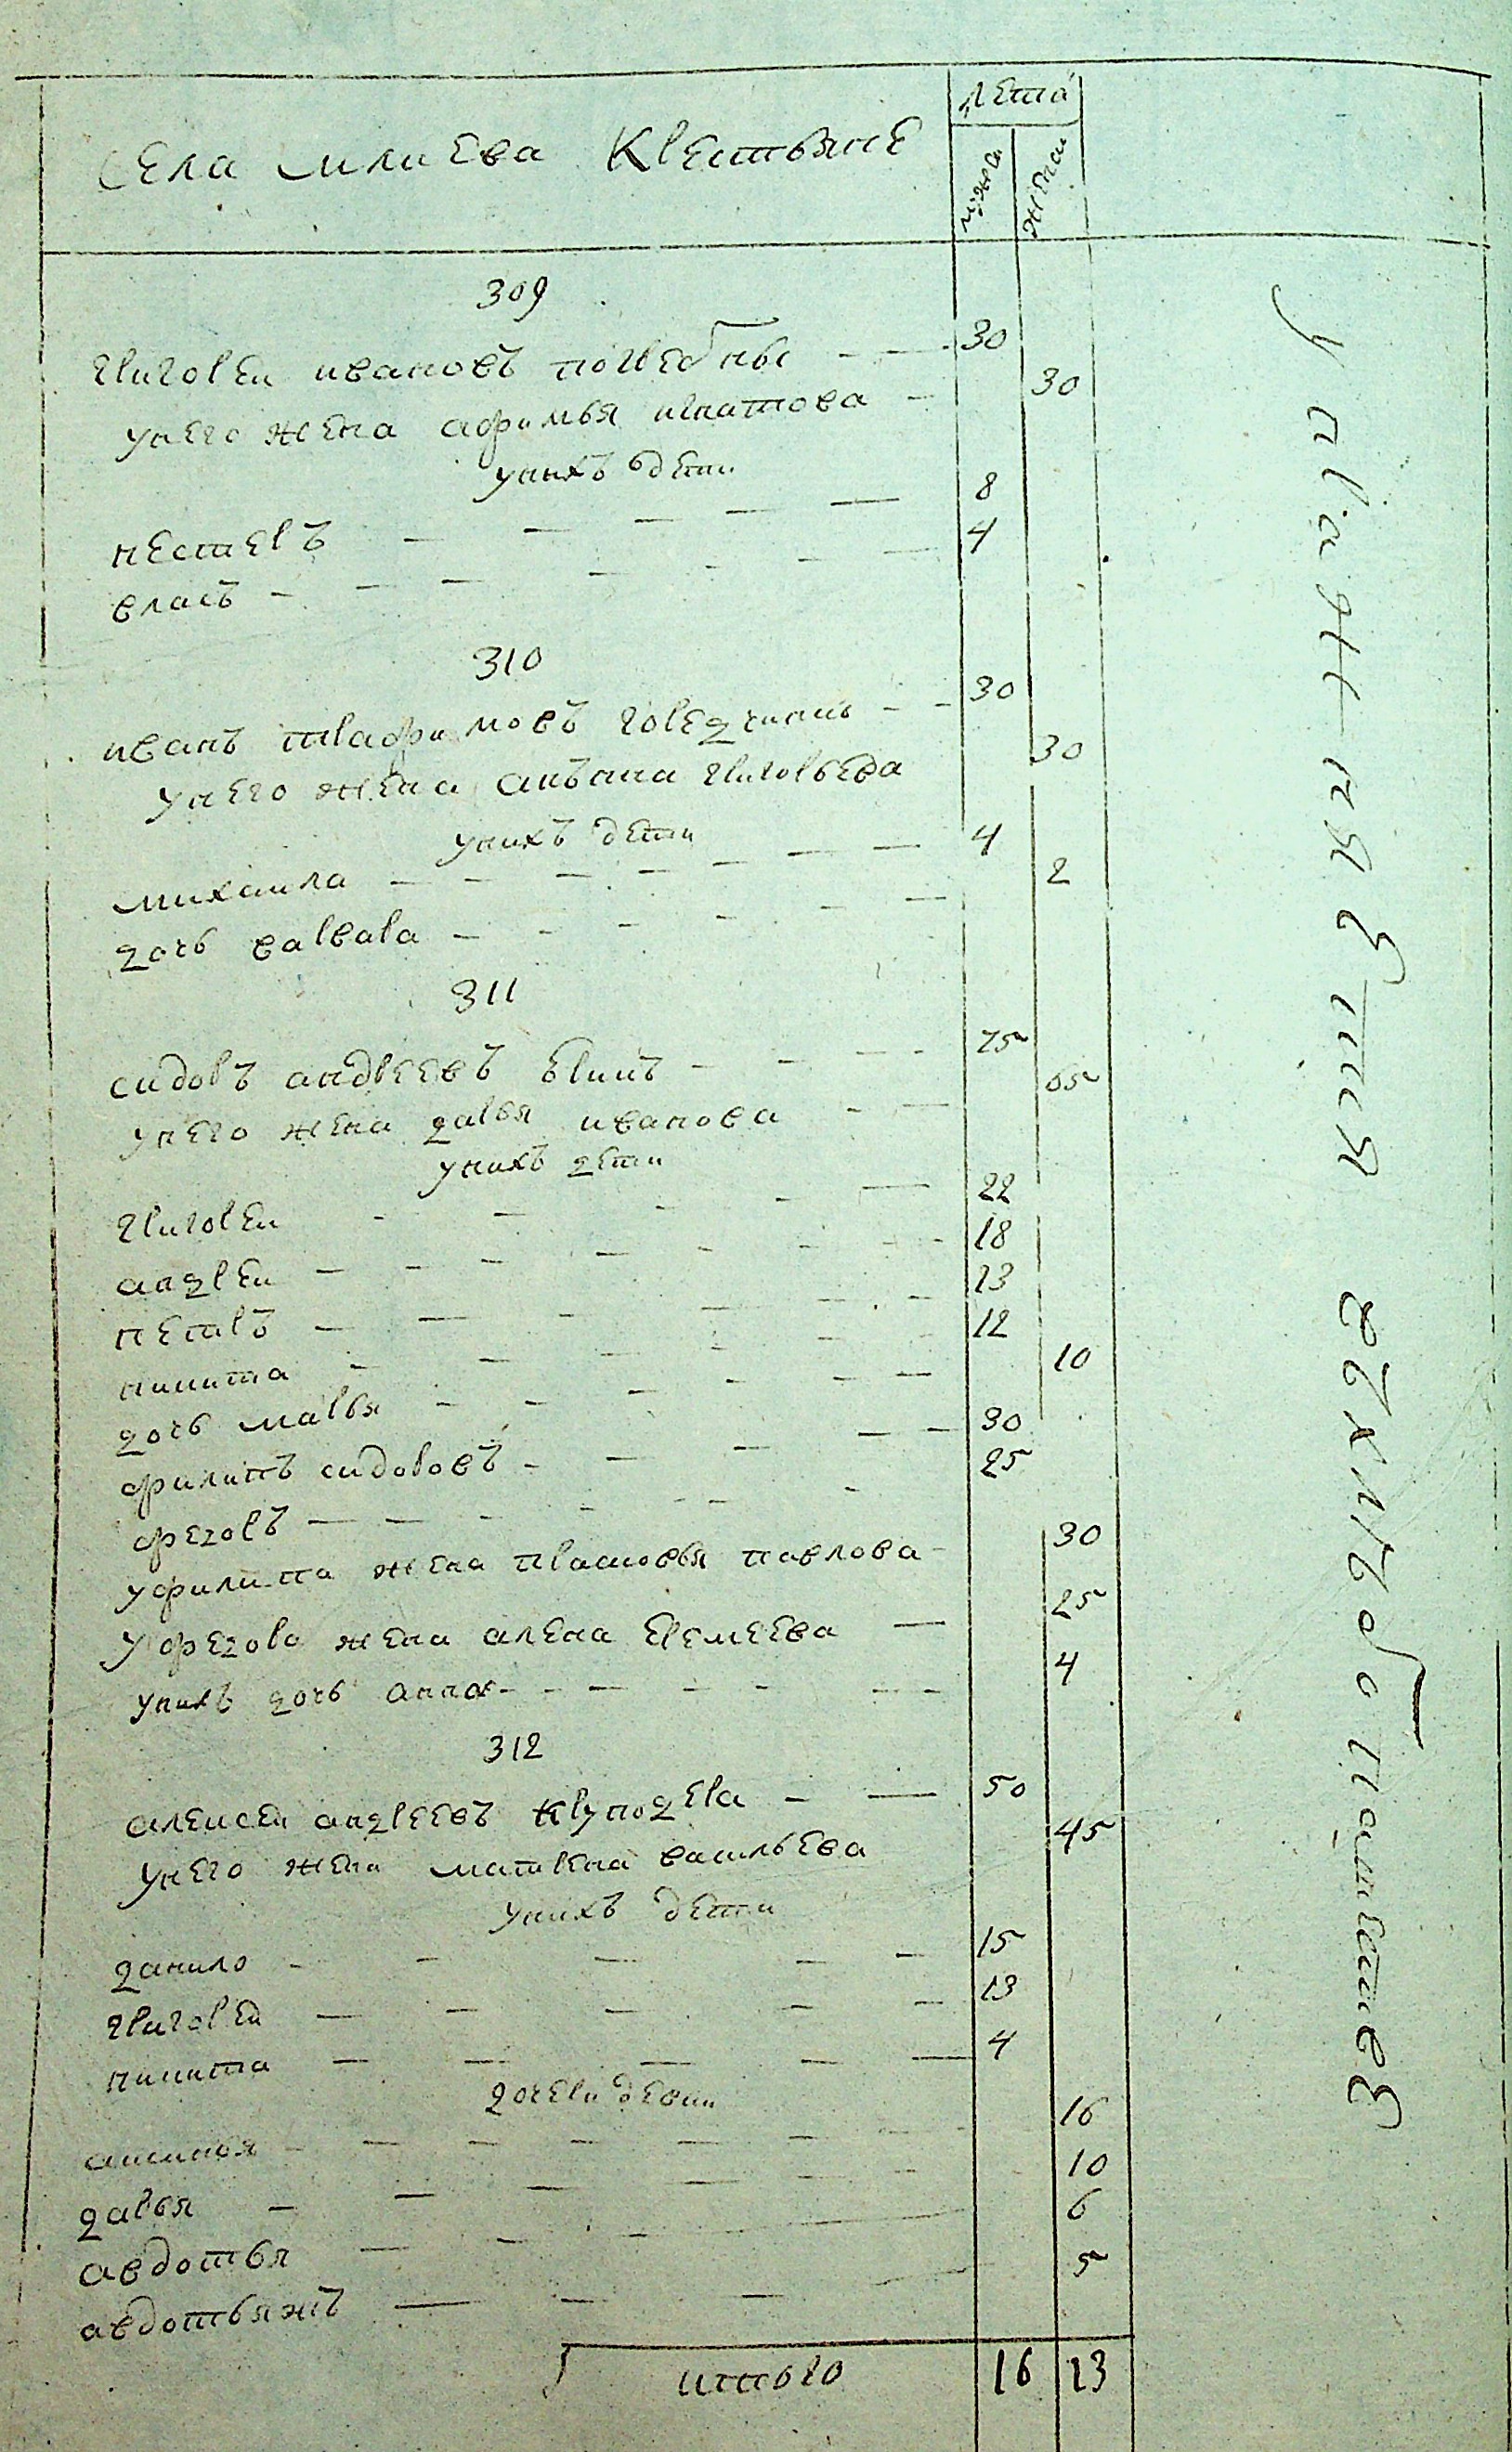 Села млиева крестьяне
лета
мужеска
женска
309
григореи ивановъ погребны 30
унего жена афимья игнатова 30
унихъ дети
нестеръ 8
власъ 4
310
иванъ трафимовъ 30
унего жена анъна григорьева 30
унихъ дети
михаила 4
дочь варвара 2
311
сидоръ андреевъ 75
унего жена дарья иванова 65
унихъ дети
григореи 22
андреи 18
петръ 13
никита 12
дочь марья 10
филипъ сидоровъ 30
федоръ 25
уфилипа жена прасковья павлова 30
уфедора жена алена еремеева 25
унихъ дочь анна 4
312
алексеи андреевъ круподера 50
унего жена матрена васильева 45
унихъ дети
данило 15
григореи 13
никита 4
дочери девки
аксинья 16
дарья 10
авдотья 6
авдотьяжъ 5
итого 16 13